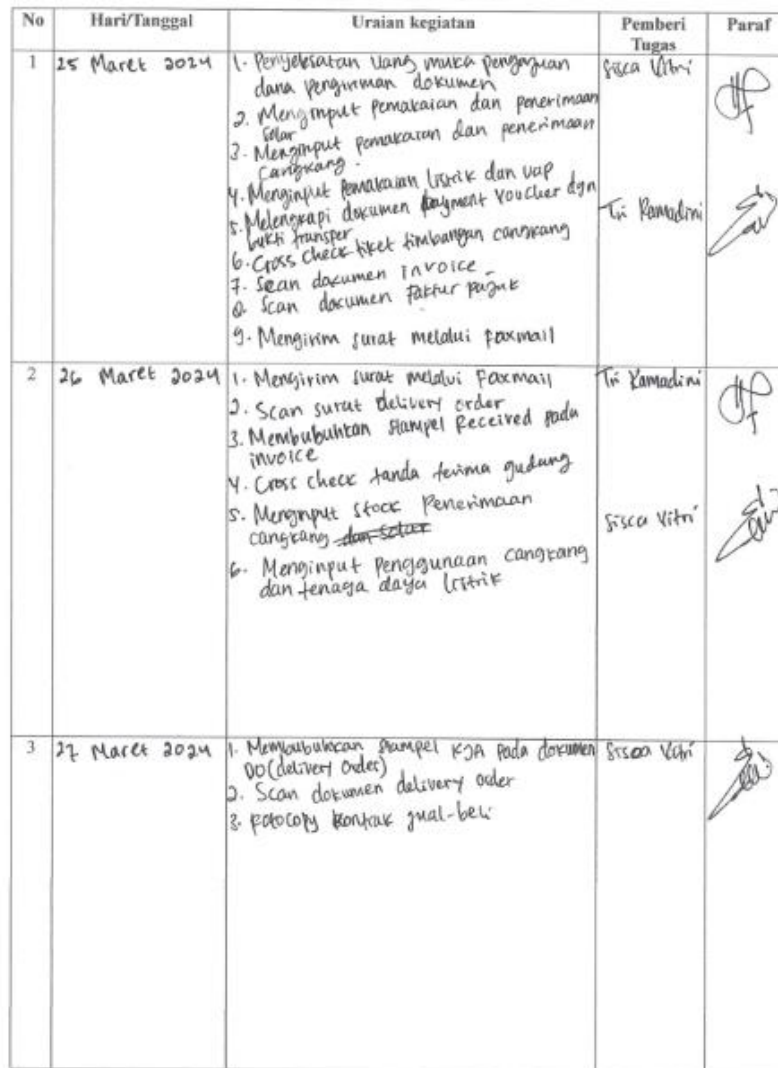 No Hari/Tanggal Uraian kegiatan Pemberi Tugas Paraf
1 25 Maret 2024 1. Penyelesaian uang muka pengajuan Sisca Vitri
dana pengiriman dokumen
2. Menginput pemakaian dan penerimaan
solar
3. Menginput pemakaian dan penerimaan
cangkang.
4. Menginput pemakaian listrik dan uap
5. Melengkapi dokumen payment voucher dgn Tri Ramadini
bukti transfer
6. Cross check tiket timbangan cangkang
7. Scan dokumen invoice
8. Scan dokumen faktur pajak
9. Mengirim surat melalui foxmail
2 26 Maret 2024 1. Mengirim surat melalui Foxmail Tri Ramadini
2. Scan surat delivery order
3. Membubuhkan stampel Received pada
invoice
4. Cross check tanda terima gudang
5. Menginput stock Penerimaan Sisca Vitri
cangkang dan solar
6. Menginput Penggunaan cangkang
dan tenaga daya listrik
3 27 Maret 2024 1. Membubuhkan stampel KJA pada dokumen Sisca Vitri
DO (delivery order)
2. Scan dokumen delivery order
3. Fotocopy kontrak jual-beli